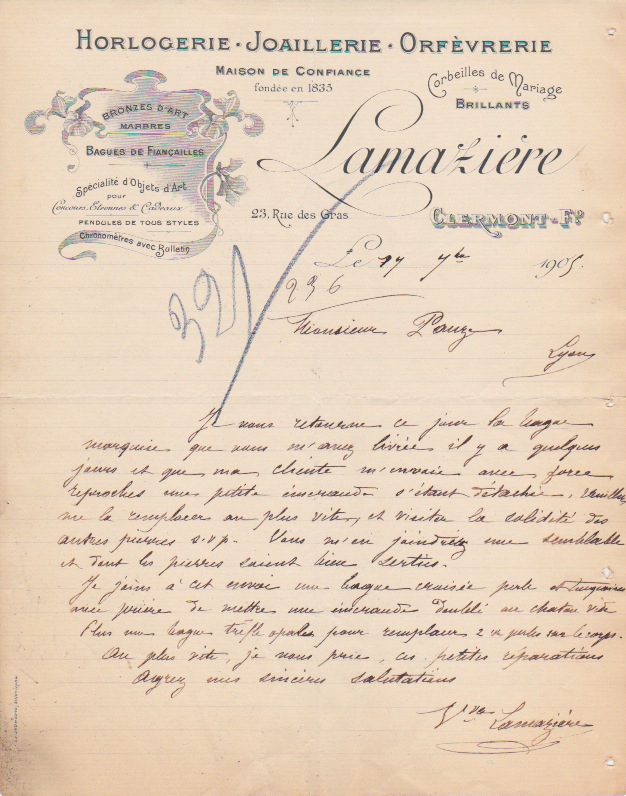 HORLOGERIE · JOAILLERIE · ORFÈVRERIE
MAISON DE CONFIANCE
fondée en 1835
Corbeilles de Mariage
BRILLANTS
BRONZES D'ART
MARBRES
BAGUES DE FIANÇAILLES
Spécialité d'Objets d'Art
pour
Concours, Etrennes & Cadeaux
PENDULES DE TOUS STYLES
Chronomètres avec Bulletin
Lamazière
23, Rue des Gras
CLERMONT-Fd
Le 17 7bre 1905.
236
321
Monsieur Pauze
Lyon
Je vous retourne ce jour la bague
marquise que vous m'avez livrée il y a quelques
jours et que ma cliente m'envoie avec force
reproches une petite émeraude s'étant détachée, veuillez
me la remplacer au plus vite, et visiter la solidité des
autres pierres s.v.p. Vous m'en joindrez une semblable
et dont les pierres soient bien serties.
Je joins à cet envoi une bague croisée perle et
avec prière de mettre une émeraude doublé au chaton vide
Plus une bague trèfle opales pour remplacer 2 perles sur le corps.
Au plus vite, je vous prie, ces petites réparations
Agréez mes sincères salutations
Vve Lamazière